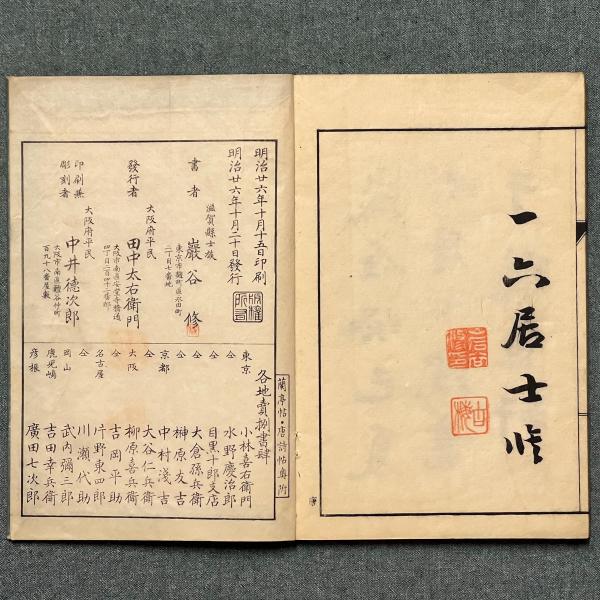 一六居士修
明治廿六年十月十五日印刷
明治廿六年十月二十日發行
版權所有
滋賀縣士族
書者 巖谷修
東京市麹町區永田町
二丁目七番地
大阪府平民
發行者 田中太右衛門
大阪市南區安堂寺橋通
四丁目二百四十二番邸
大阪府平民
印刷兼彫刻者 中井德次郎
大阪市南區難谷仲町
百九十八番屋敷
蘭亭帖・唐詩帖奥附
各地賣捌書肆
東京 小林喜右衛門
仝 水野慶治郎
仝 目黒十郎支店
仝 大倉孫兵衛
仝 榊原友吉
京都 中村淺吉
仝 大谷仁兵衛
大阪 柳原喜兵衛
仝 吉岡平助
名古屋 片野東四郎
仝 川瀬代助
岡山 武内彌三郎
鹿児嶋 吉田幸兵衛
彦根 廣田七次郎